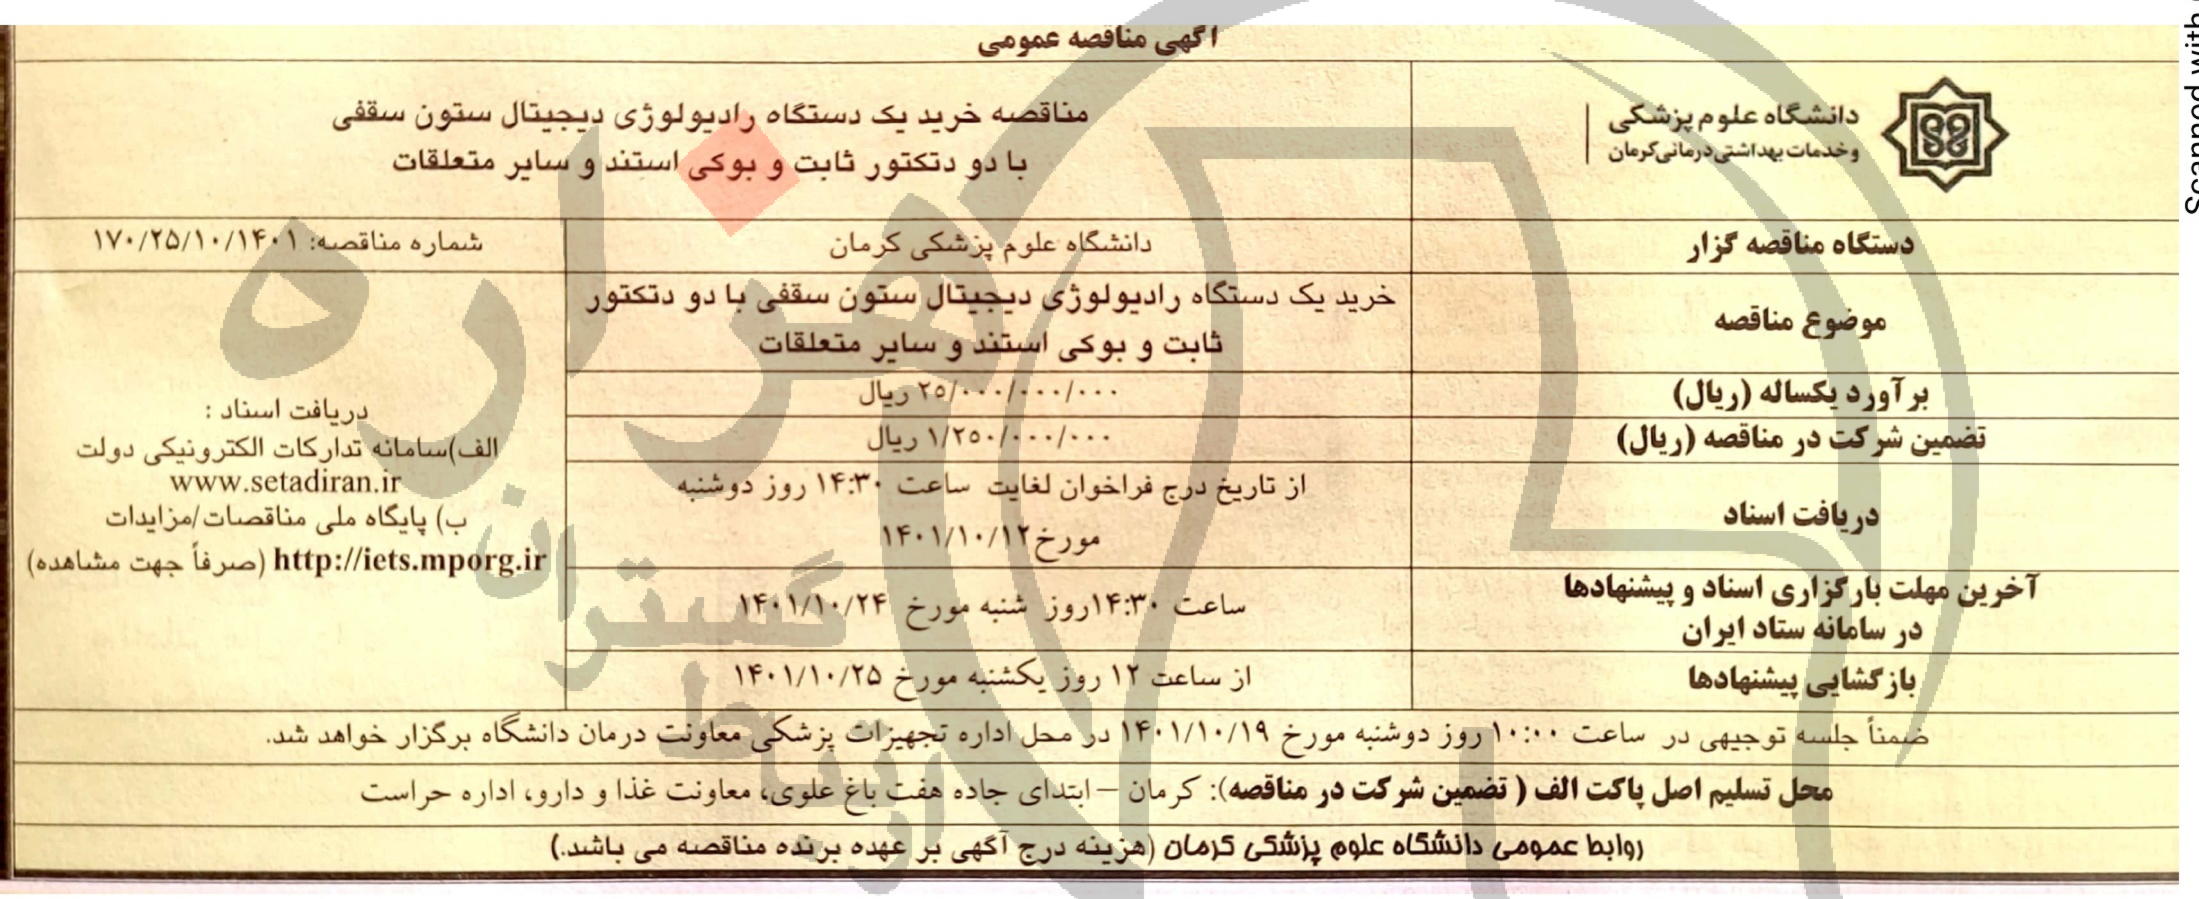 آگهی مناقصه عمومی
دانشگاه علوم پزشکی
وخدمات بهداشتی درمانی کرمان
مناقصه خرید یک دستگاه رادیولوژی دیجیتال ستون سقفی
با دو دتکتور ثابت و بوکی استند و سایر متعلقات
دستگاه مناقصه گزار
دانشگاه علوم پزشکی کرمان
شماره مناقصه: ۱۷۰/۲۵/۱۰/۱۴۰۱
موضوع مناقصه
خرید یک دستگاه رادیولوژی دیجیتال ستون سقفی با دو دتکتور
ثابت و بوکی استند و سایر متعلقات
برآورد یکساله (ریال)
۲۵/۰۰۰/۰۰۰/۰۰۰ ریال
تضمین شرکت در مناقصه (ریال)
۱/۲۵۰/۰۰۰/۰۰۰ ریال
دریافت اسناد
از تاریخ درج فراخوان لغایت ساعت ۱۴:۳۰ روز دوشنبه
مورخ ۱۴۰۱/۱۰/۱۲
آخرین مهلت بارگزاری اسناد و پیشنهادها
در سامانه ستاد ایران
ساعت ۱۴:۳۰روز شنبه مورخ ۱۴۰۱/۱۰/۲۴
بازگشایی پیشنهادها
از ساعت ۱۲ روز یکشنبه مورخ ۱۴۰۱/۱۰/۲۵
دریافت اسناد :
الف)سامانه تدارکات الکترونیکی دولت
www.setadiran.ir
ب) پایگاه ملی مناقصات/مزایدات
http://iets.mporg.ir (صرفاً جهت مشاهده)
ضمناً جلسه توجیهی در ساعت ۱۰:۰۰ روز دوشنبه مورخ ۱۴۰۱/۱۰/۱۹ در محل اداره تجهیزات پزشکی معاونت درمان دانشگاه برگزار خواهد شد.
محل تسلیم اصل پاکت الف ( تضمین شرکت در مناقصه): کرمان – ابتدای جاده هفت باغ علوی، معاونت غذا و دارو، اداره حراست
روابط عمومی دانشگاه علوم پزشکی کرمان (هزینه درج آگهی بر عهده برنده مناقصه می باشد.)
هزاره
گستران
ارتباط